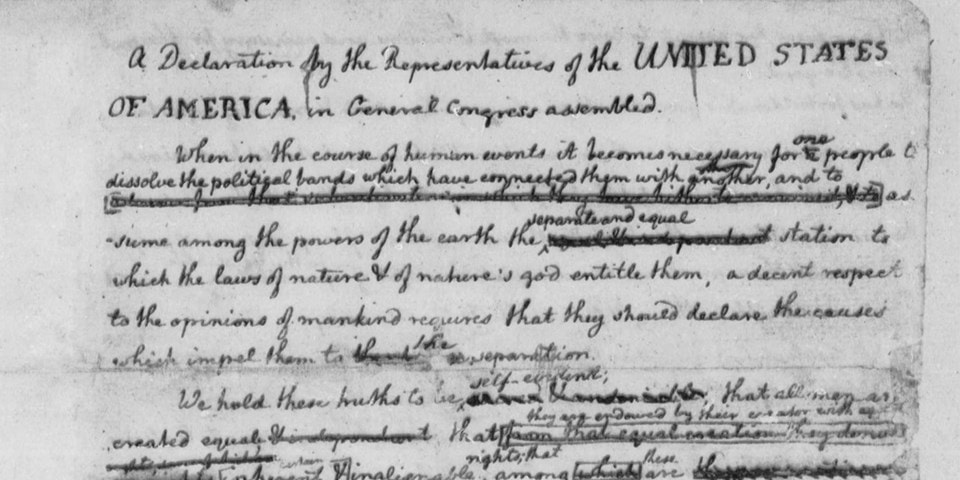 A Declaration by the Representatives of the UNITED STATES
OF AMERICA, in General Congress assembled.
When in the course of human events it becomes necessary for one people to
dissolve the political bands which have connected them with another, and to
as
separate and equal
-sume among the powers of the earth the station to
which the laws of nature & of nature's god entitle them, a decent respect
to the opinions of mankind requires that they should declare the causes
which impel them to the separation.
self-evident;
We hold these truths to be that all men are
they are endowed by their creator with
created equal & independent that from that equal creation they
rights; that these
inherent & inalienable, among which are